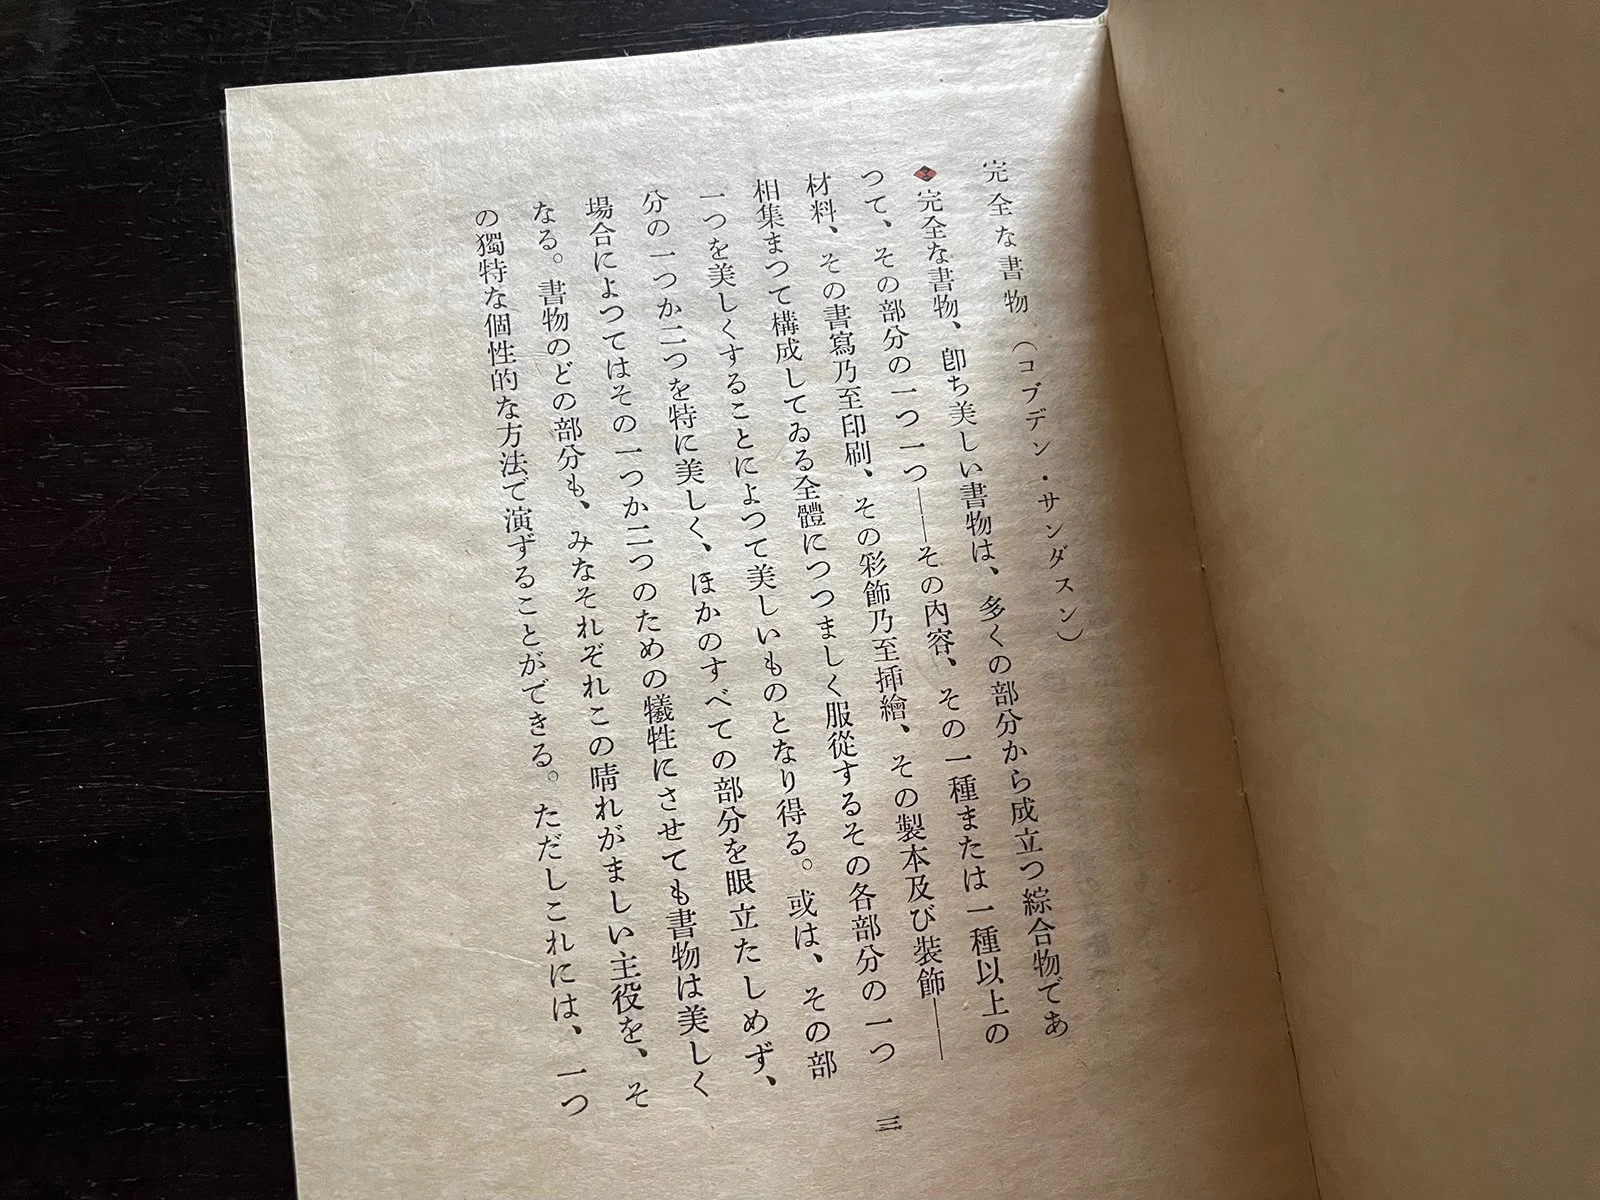 完全な書物（コブデン・サンダスン）
完全な書物、卽ち美しい書物は、多くの部分から成立つ綜合物であ
つて、その部分の一つ一つ——その內容、その一種または一種以上の
材料、その書寫乃至印刷、その彩飾乃至揷繪、その製本及び裝飾——
相集まつて構成してゐる全體につつましく服從するその各部分の一つ
一つを美しくすることによつて美しいものとなり得る。或は、その部
分の一つか二つを特に美しく、ほかのすべての部分を眼立たしめず、
場合によつてはその一つか二つのための犧牲にさせても書物は美しく
なる。書物のどの部分も、みなそれぞれこの晴れがましい主役を、そ
の獨特な個性的な方法で演ずることができる。ただしこれには、一つ
三